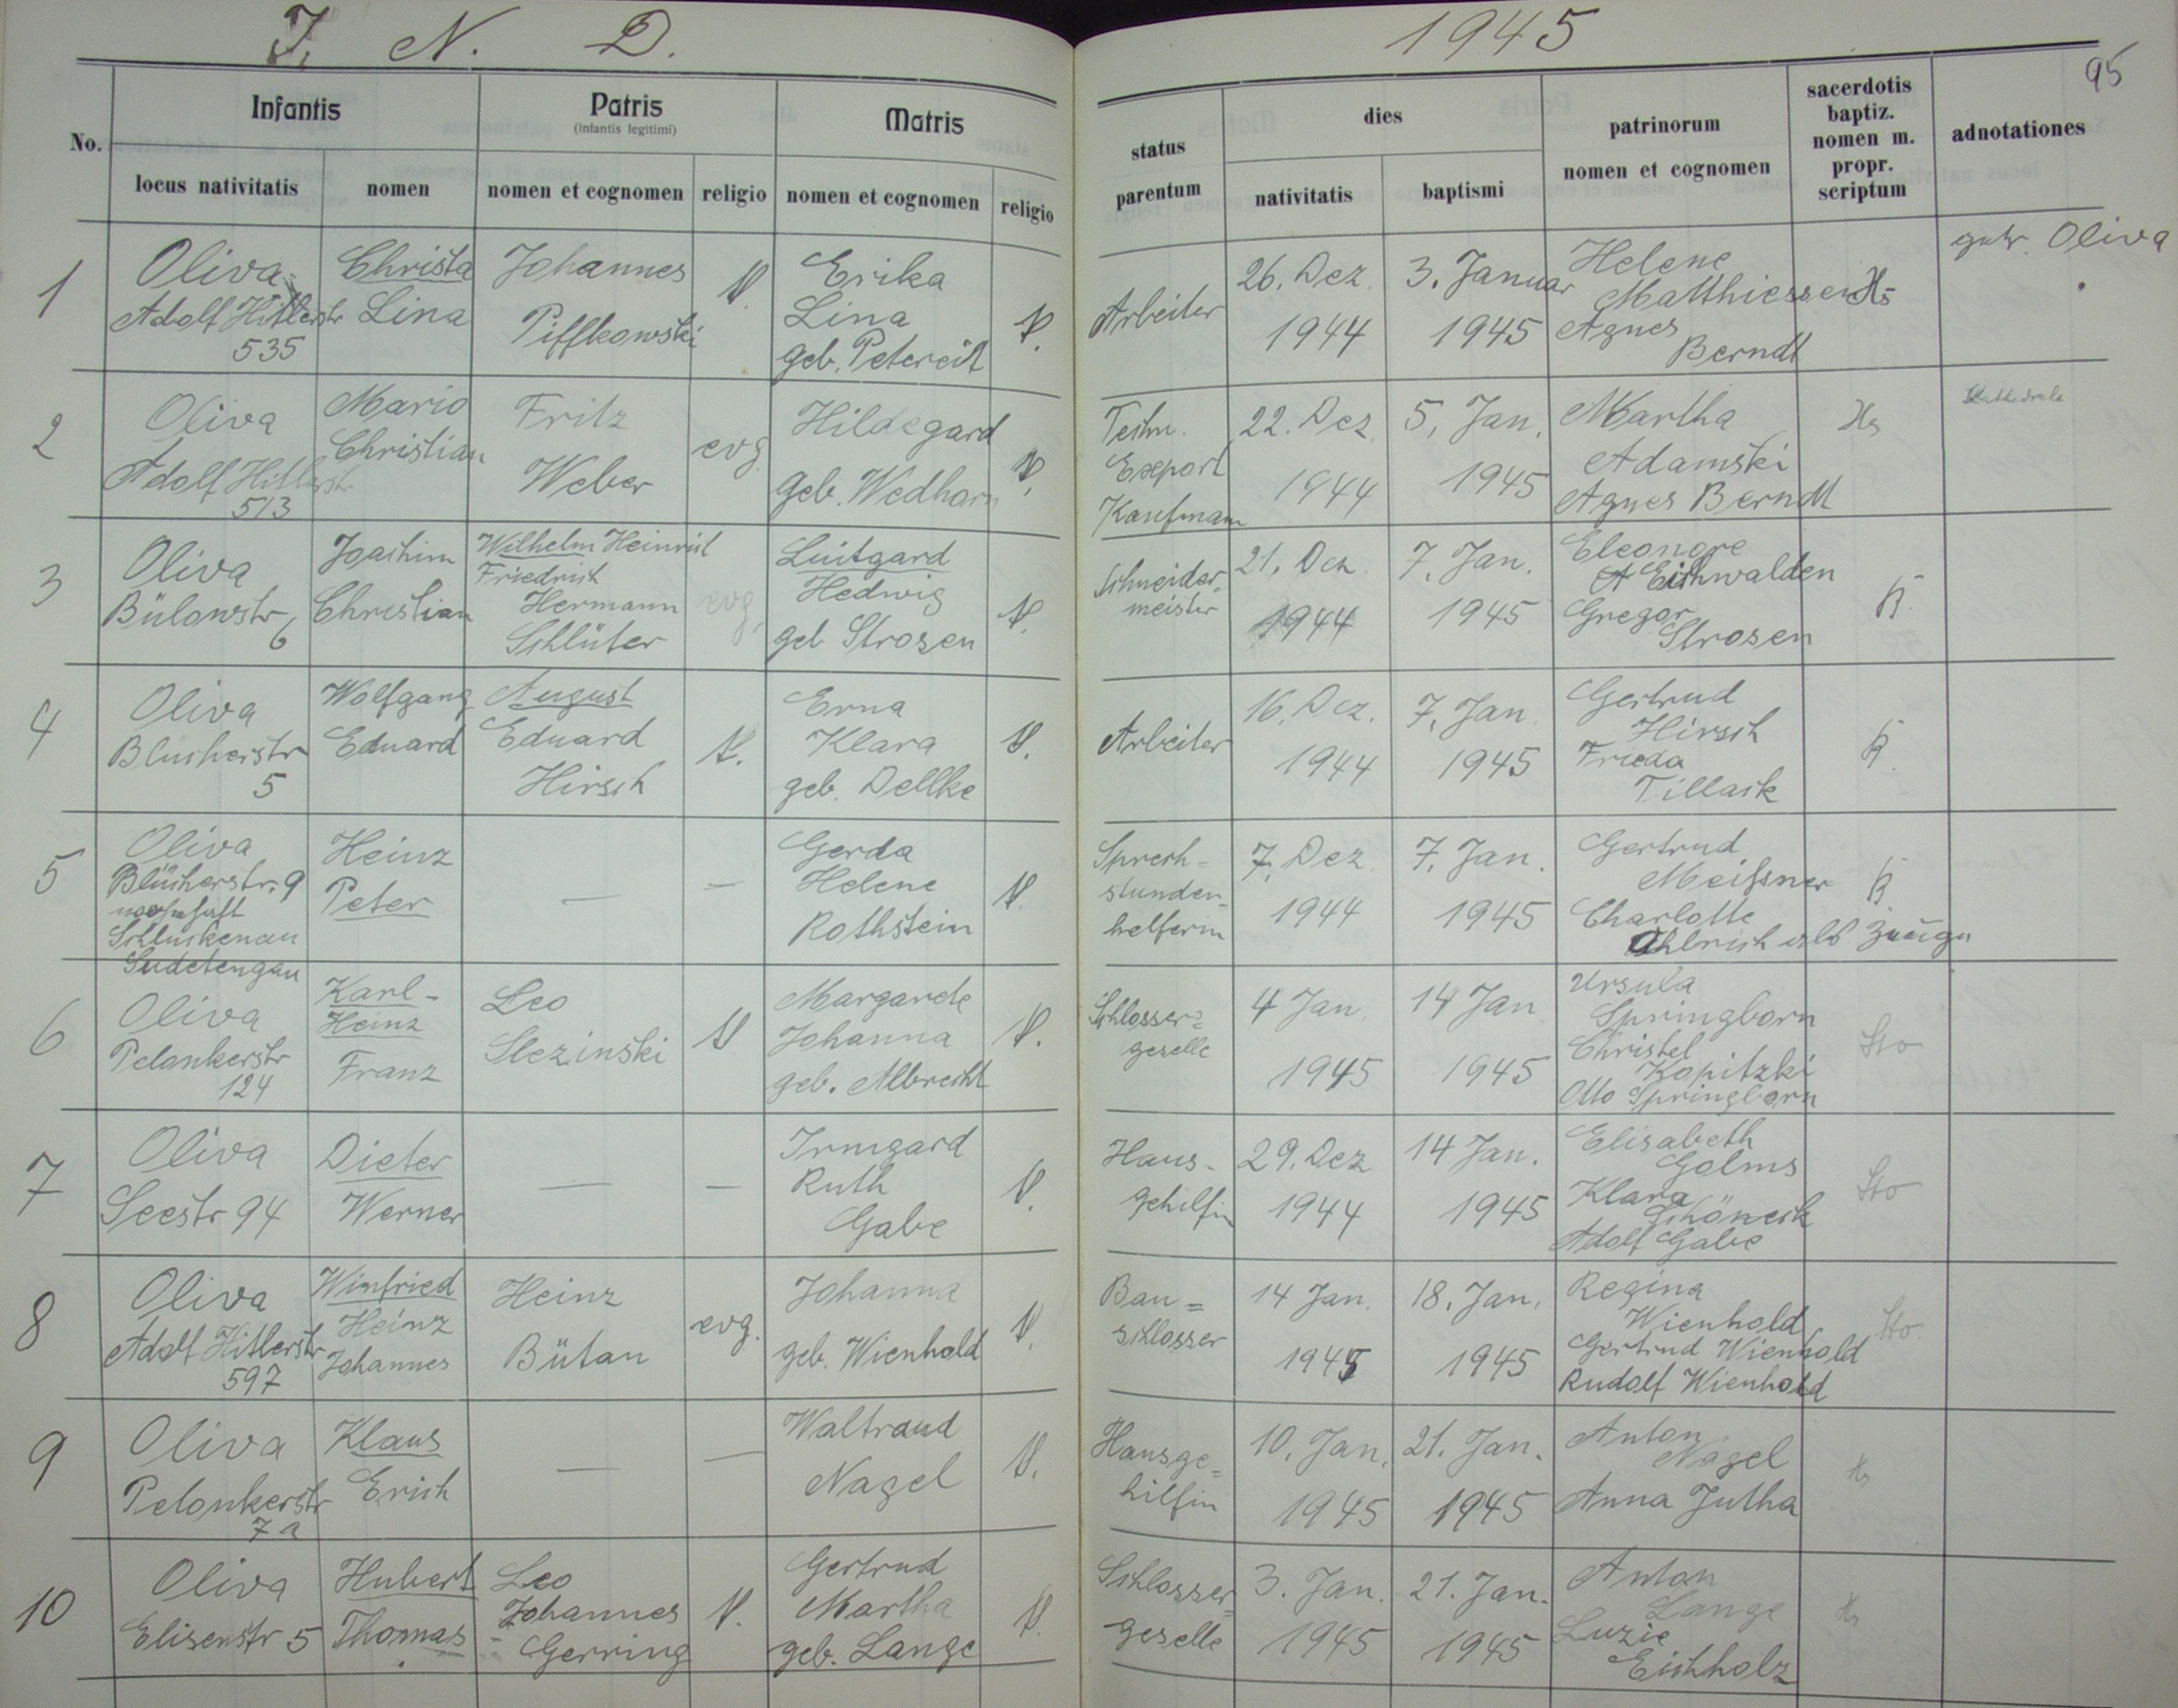 J. N. D. 1945
95
No.
Infantis
locus nativitatis
nomen
Patris
(infantis legitimi)
nomen et cognomen
religio
Matris
nomen et cognomen
religio
status
parentum
dies
nativitatis
baptismi
patrinorum
nomen et cognomen
sacerdotis
baptiz.
nomen m.
propr.
scriptum
adnotationes
1
Oliva
Adolf Hitlerstr
535
Christa
Lina
Johannes
Piffkowski
Erika
Lina
geb. Petereit
Arbeiter
26. Dez.
1944
3. Januar
1945
Helene
Matthiessen
Agnes
Berndt
Hs
getr. Oliva
2
Oliva
Adolf Hitlerstr
513
Mario
Christian
Fritz
Weber
evg.
Hildegard
geb. Wedhorn
Techn.
Export
Kaufmann
22. Dez.
1944
5. Jan.
1945
Martha
Adamski
Agnes Berndt
Hs
Kathedrale
3
Oliva
Bülowstr
6
Joachim
Christian
Wilhelm Heinrich
Friedrich
Hermann
Schlüter
evg.
Luitgard
Hedwig
geb Strosen
Schneider-
meister
21. Dez.
1944
7. Jan.
1945
Eleonore
Eichwalden
Gregor
Strosen
4
Oliva
Blücherstr
5
Wolfgang
Eduard
August
Eduard
Hirsch
Erna
Klara
geb. Dellke
Arbeiter
16. Dez.
1944
7. Jan.
1945
Gertrud
Hirsch
Frieda
Tillack
5
Oliva
Blücherstr. 9
wohnhaft
Schluckenau
Sudetengau
Heinz
Peter
—
—
Gerda
Helene
Rothstein
Sprech-
stunden-
helferin
7. Dez.
1944
7. Jan.
1945
Gertrud
Meißner
Charlotte
Ohlrich als Zeugin
6
Oliva
Pelonkerstr
124
Karl-
Heinz
Franz
Leo
Slezinski
Margarete
Johanna
geb. Albrecht
Schlosser=
geselle
4 Jan.
1945
14 Jan
1945
Ursula
Springborn
Christel
Kopitzki
Otto Springborn
Sto
7
Oliva
Seestr 94
Dieter
Werner
—
—
Irmgard
Ruth
Gabe
Haus-
gehilfin
29. Dez
1944
14 Jan.
1945
Elisabeth
Golms
Klara
Schöneck
Adolf Gabe
Sto
8
Oliva
Adolf Hitlerstr
597
Winfried
Heinz
Johannes
Heinz
Bütan
evg.
Johanna
geb. Wienhold
Bau=
schlosser
14 Jan.
1945
18. Jan.
1945
Regina
Wienhold
Gertrud Wienhold
Rudolf Wienhold
Sto
9
Oliva
Pelonkerstr
7a
Klaus
Erich
—
—
Waltraud
Nagel
Hausge=
hilfin
10. Jan.
1945
21. Jan.
1945
Anton
Nagel
Anna Jutha
Hs
10
Oliva
Elisenstr 5
Hubert
Thomas
Leo
Johannes
Gerring
Gertrud
Martha
geb. Lange
Schlosser=
geselle
3. Jan.
1945
21. Jan.
1945
Anton
Lange
Luzie
Eichholz
Hs